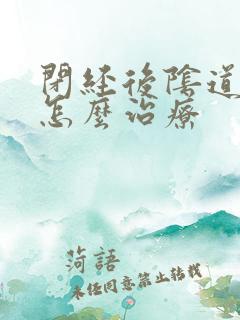 閉經後陰道
怎麼治療
菏語
未经同意禁止转载